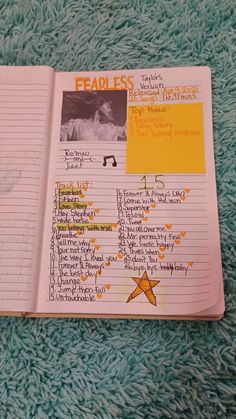 FEARLESS Taylor's
Version
Released: Apr 9 2021
26 songs
Top three:
1. Fearless
2. Love Story
3. You belong with me
Romeo
and
Juliet
1.5
Track list:
1. Fearless
2. Fifteen
3. Love Story
4. Hey Stephen
5. White horse
6. You belong with me
7. Breathe
8. Tell me why
9. Your not Sorry
10. The way I loved you
11. Forever & Always
12. The best day
13. Change
14. Jump then fall
15. Untouchable
16. Forever & Always
17. Come in with the rain
18. Superstar
19.
20.
21. You all over me
22. Mr. perfectly fine
23. We were happy
24. That's when
25. Don't You
26. bye bye baby